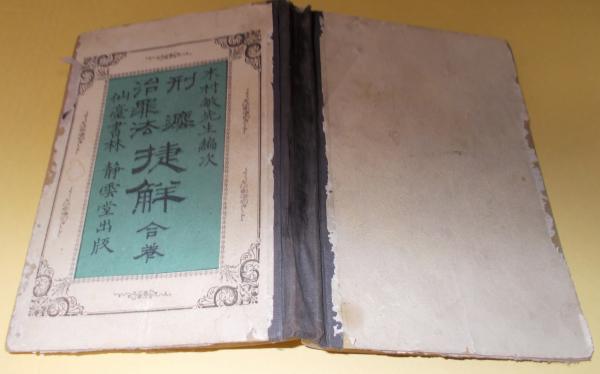 木村敏先生編次
刑瀍
治罪法
捷解
合巻
仙臺書林 静雲堂出版